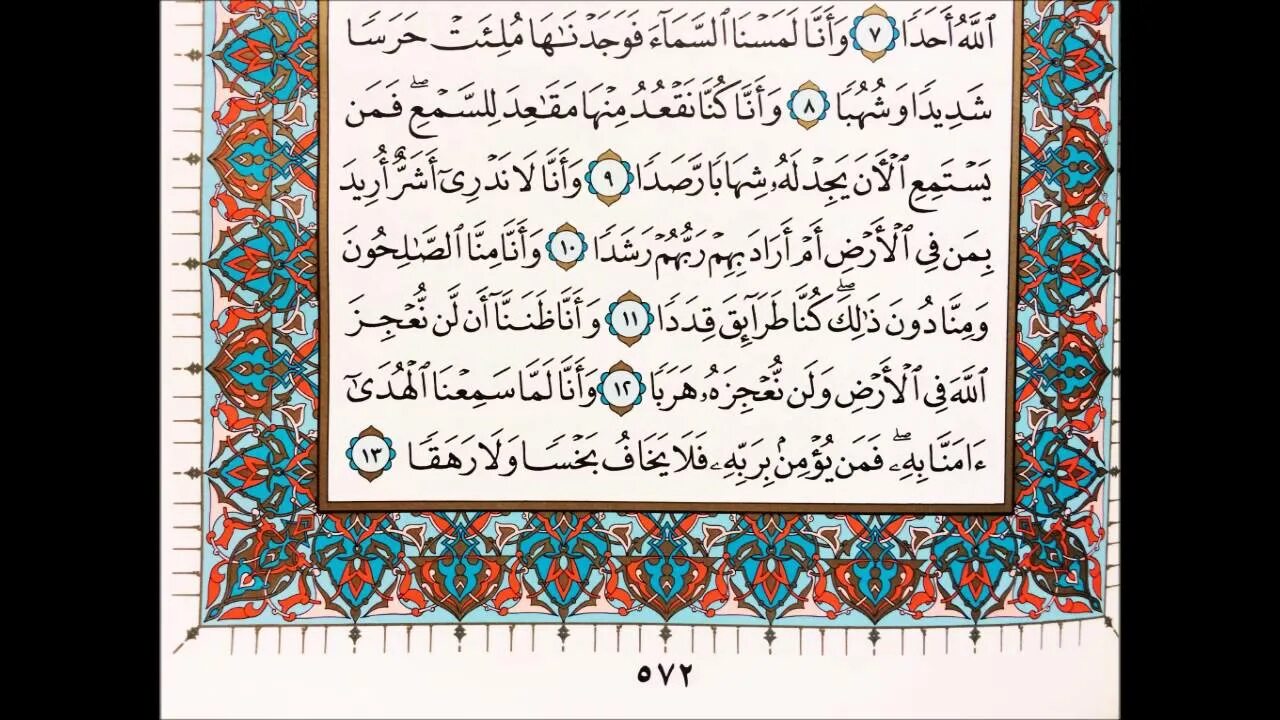 ٱللَّهُ أَحَدًا ٧ وَأَنَّا لَمَسْنَا ٱلسَّمَآءَ فَوَجَدْنَـٰهَا مُلِئَتْ حَرَسًا
شَدِيدًا وَشُهُبًا ٨ وَأَنَّا كُنَّا نَقْعُدُ مِنْهَا مَقَـٰعِدَ لِلسَّمْعِ ۖ فَمَن
يَسْتَمِعِ ٱلْـَٔانَ يَجِدْ لَهُۥ شِهَابًا رَّصَدًا ٩ وَأَنَّا لَا نَدْرِىٓ أَشَرٌّ أُرِيدَ
بِمَن فِى ٱلْأَرْضِ أَمْ أَرَادَ بِهِمْ رَبُّهُمْ رَشَدًا ١٠ وَأَنَّا مِنَّا ٱلصَّـٰلِحُونَ
وَمِنَّا دُونَ ذَٰلِكَ ۖ كُنَّا طَرَآئِقَ قِدَدًا ١١ وَأَنَّا ظَنَنَّآ أَن لَّن نُّعْجِزَ
ٱللَّهَ فِى ٱلْأَرْضِ وَلَن نُّعْجِزَهُۥ هَرَبًا ١٢ وَأَنَّا لَمَّا سَمِعْنَا ٱلْهُدَىٰٓ
ءَامَنَّا بِهِۦ ۖ فَمَن يُؤْمِنۢ بِرَبِّهِۦ فَلَا يَخَافُ بَخْسًا وَلَا رَهَقًا ١٣
٥٧٢